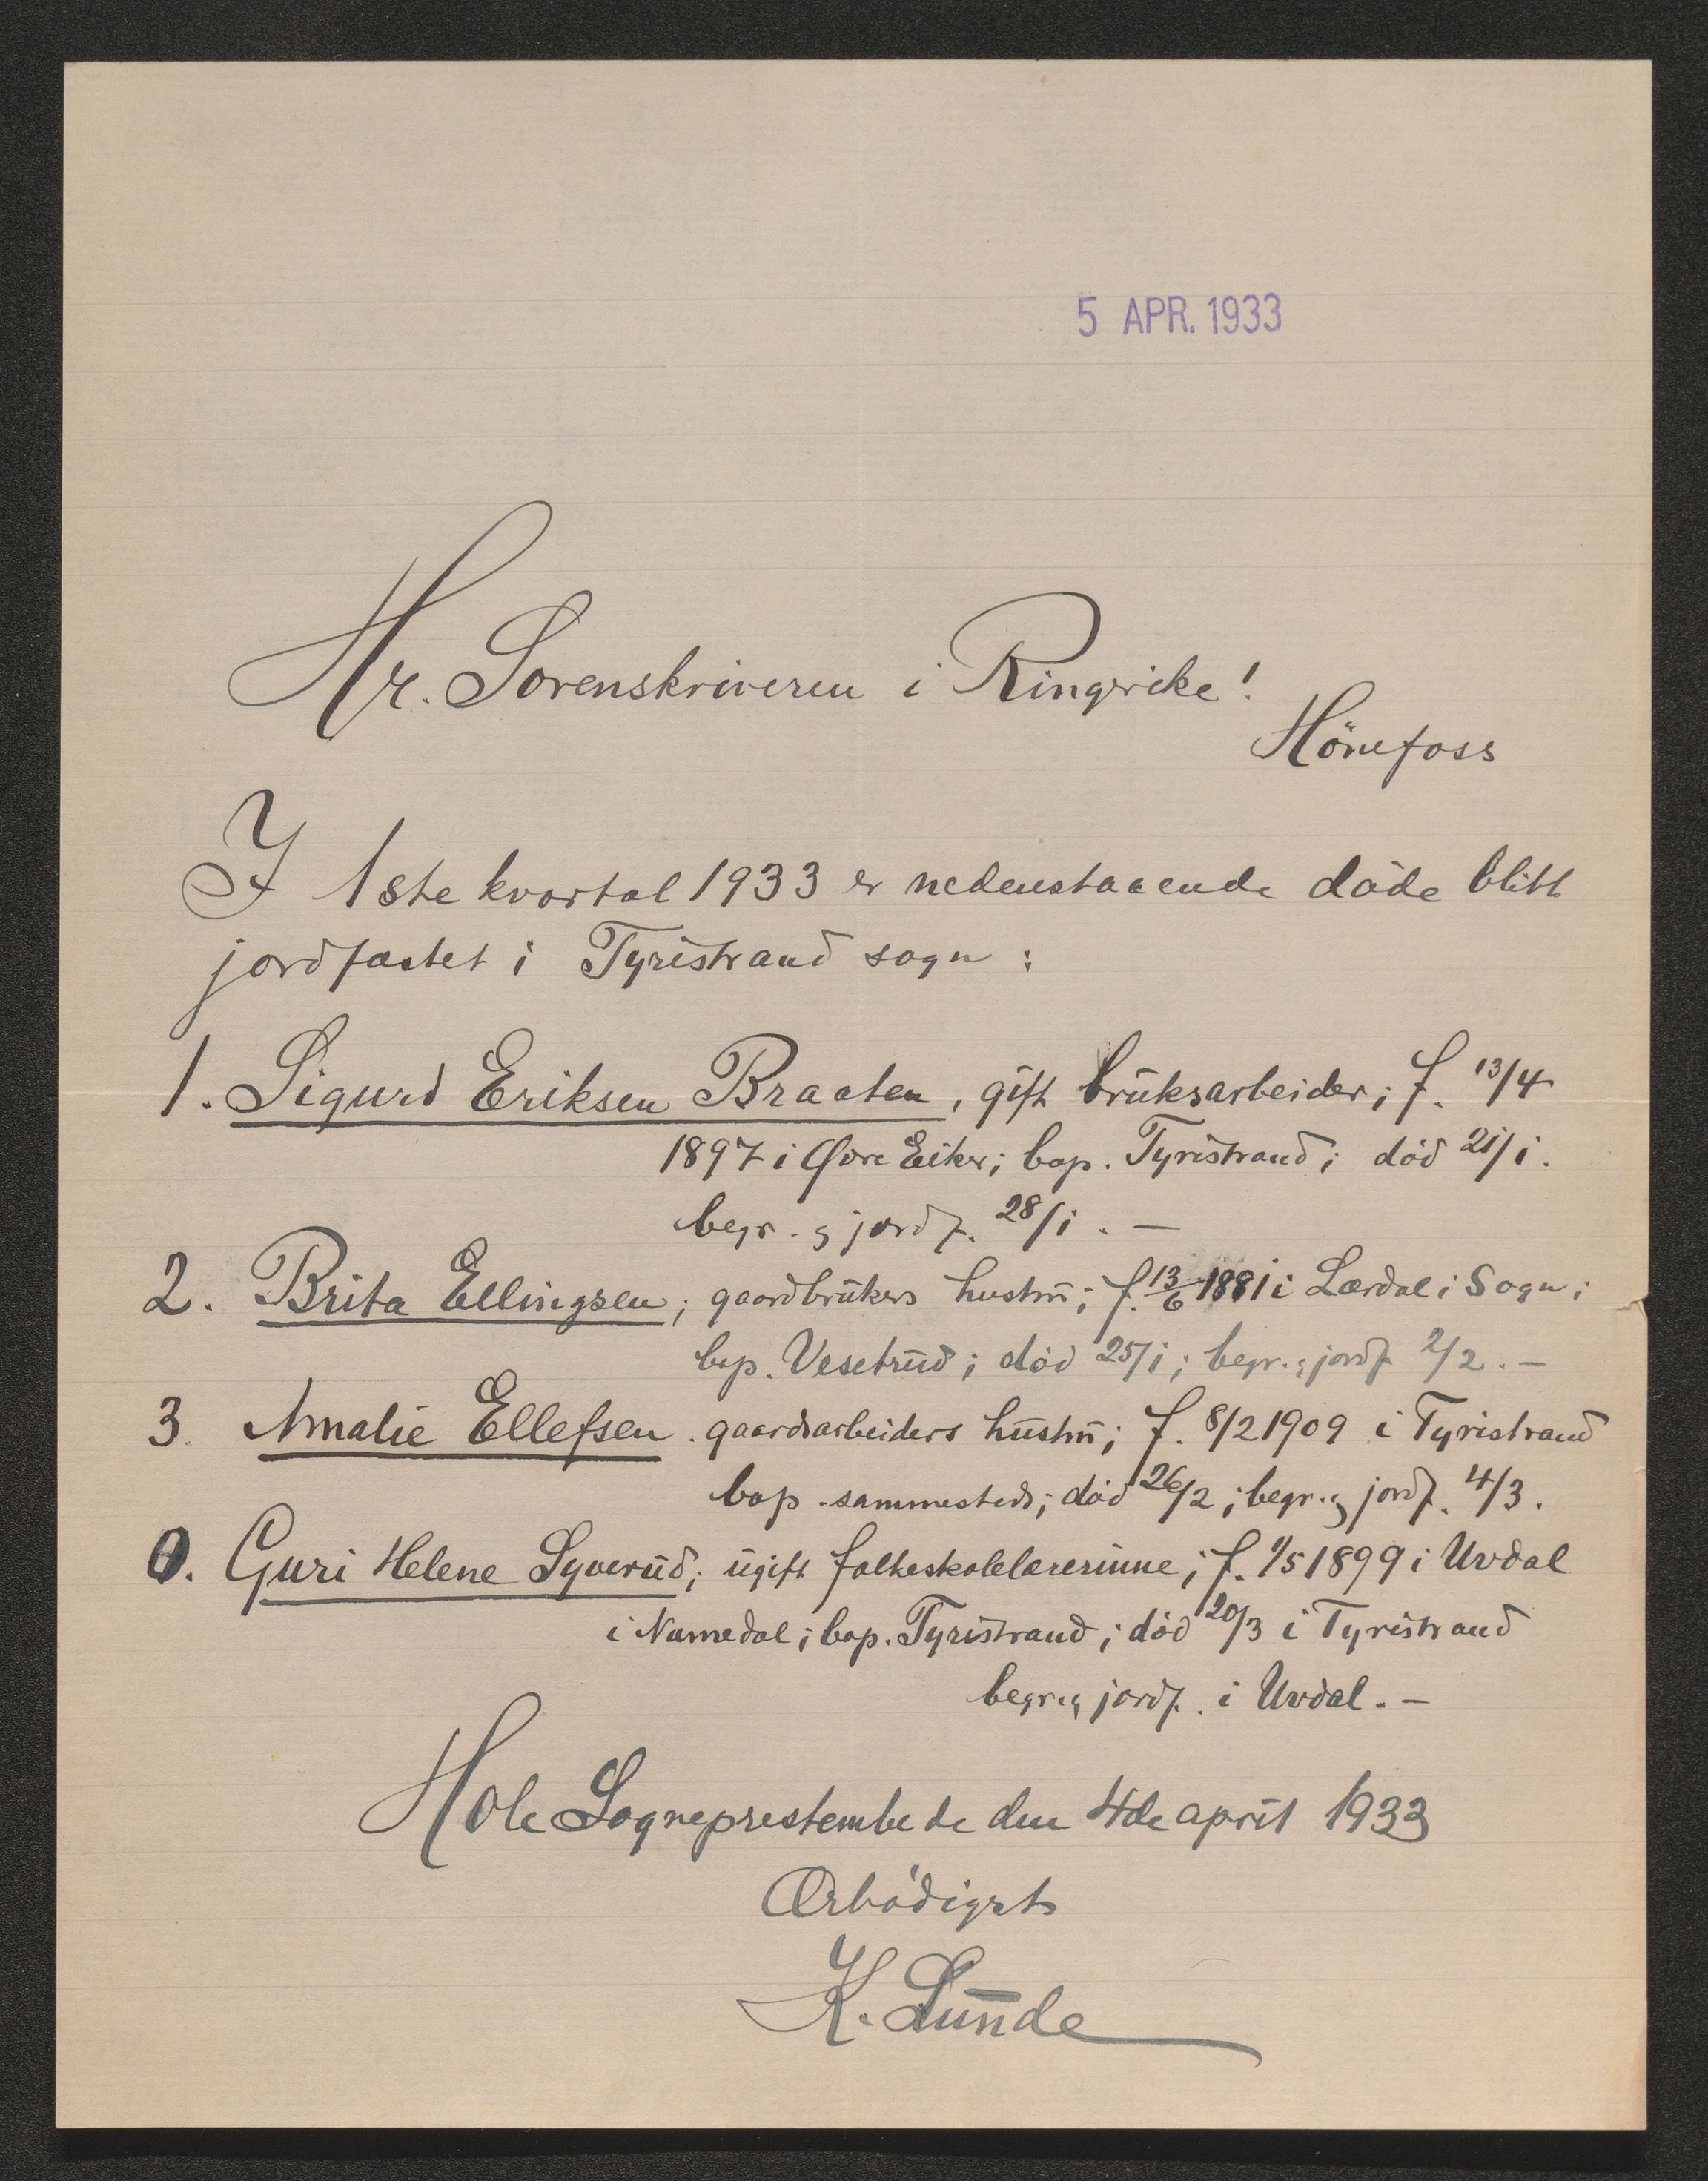 5 APR. 1933
Hr. Sorenskriveren i Ringerike!
Hönefoss
I 1ste kvartal 1933 er nedenstaaende døde blitt
jordfæstet i Tyristrand sogn :
1. Sigurd Eriksen Braaten, gift bruksarbeider; f. 13/4
1897 i Øvre Eiker; bop. Tyristrand; död 21/1.
begr. og jordf. 28/1. —
2. Brita Ellingsen; gaardbrukers hustru; f. 13/6 1881 i Lærdal i Sogn;
bop. Vesetrud; död 25/1; begr. og jordf. 2/2. —
3. Amalie Ellefsen. gaardsarbeiders hustru; f. 8/2 1909 i Tyristrand
bop. sammesteds; död 26/2; begr. og jordf. 4/3.
0. Guri Helene Syverud; ugift folkeskolelærerinne; f. 1/5 1899 i Uvdal
i Numedal; bop. Tyristrand; död 20/3 i Tyristrand
begr. og jordf. i Uvdal. —
Hole Sogneprestembede den 4de april 1933
Ærbödigst
K. Lunde